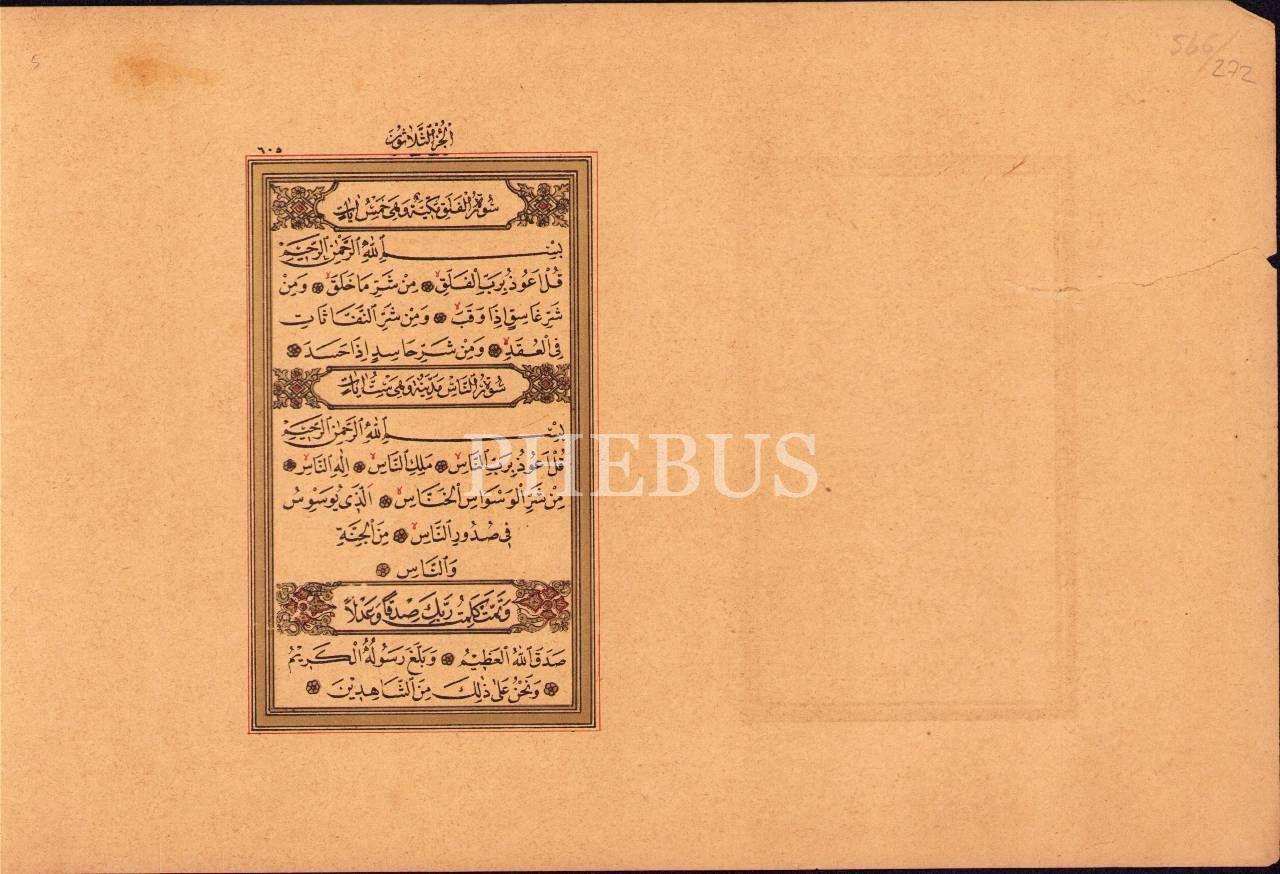 5
566/272
الجزء الثلاثون
٦٠٥
سُورَةُ الْفَلَقِ مَكِّيَّةٌ وَهِيَ خَمْسُ اٰيَاتٍ
بِسْمِ اللّٰهِ الرَّحْمٰنِ الرَّحِيمِ
قُلْ اَعُوذُ بِرَبِّ الْفَلَقِ ۙ مِنْ شَرِّ مَا خَلَقَ ۙ وَمِنْ
شَرِّ غَاسِقٍ اِذَا وَقَبَ ۙ وَمِنْ شَرِّ النَّفَّاثَاتِ
فِي الْعُقَدِ ۙ وَمِنْ شَرِّ حَاسِدٍ اِذَا حَسَدَ
سُورَةُ النَّاسِ مَدَنِيَّةٌ وَهِيَ سِتُّ اٰيَاتٍ
بِسْمِ اللّٰهِ الرَّحْمٰنِ الرَّحِيمِ
قُلْ اَعُوذُ بِرَبِّ النَّاسِ ۙ مَلِكِ النَّاسِ ۙ اِلٰهِ النَّاسِ ۙ
مِنْ شَرِّ الْوَسْوَاسِ الْخَنَّاسِ ۙ اَلَّذِي يُوَسْوِسُ
فِي صُدُورِ النَّاسِ ۙ مِنَ الْجِنَّةِ
وَالنَّاسِ
وَتَمَّتْ كَلِمَتُ رَبِّكَ صِدْقًا وَعَدْلًا
صَدَقَ اللّٰهُ الْعَظِيمُ وَبَلَّغَ رَسُولُهُ الْكَرِيمُ
وَنَحْنُ عَلٰى ذٰلِكَ مِنَ الشَّاهِدِينَ
PHEBUS